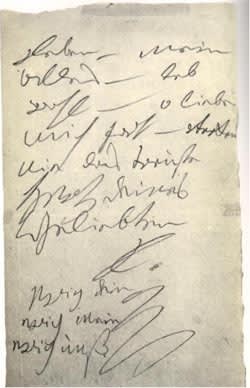 Leben – Mein
alles – leb
wohl – o liebe
mich fort – verken
nie das treuste
Herz deines
Geliebten
L.
ewig dein
ewig mein
ewig unß